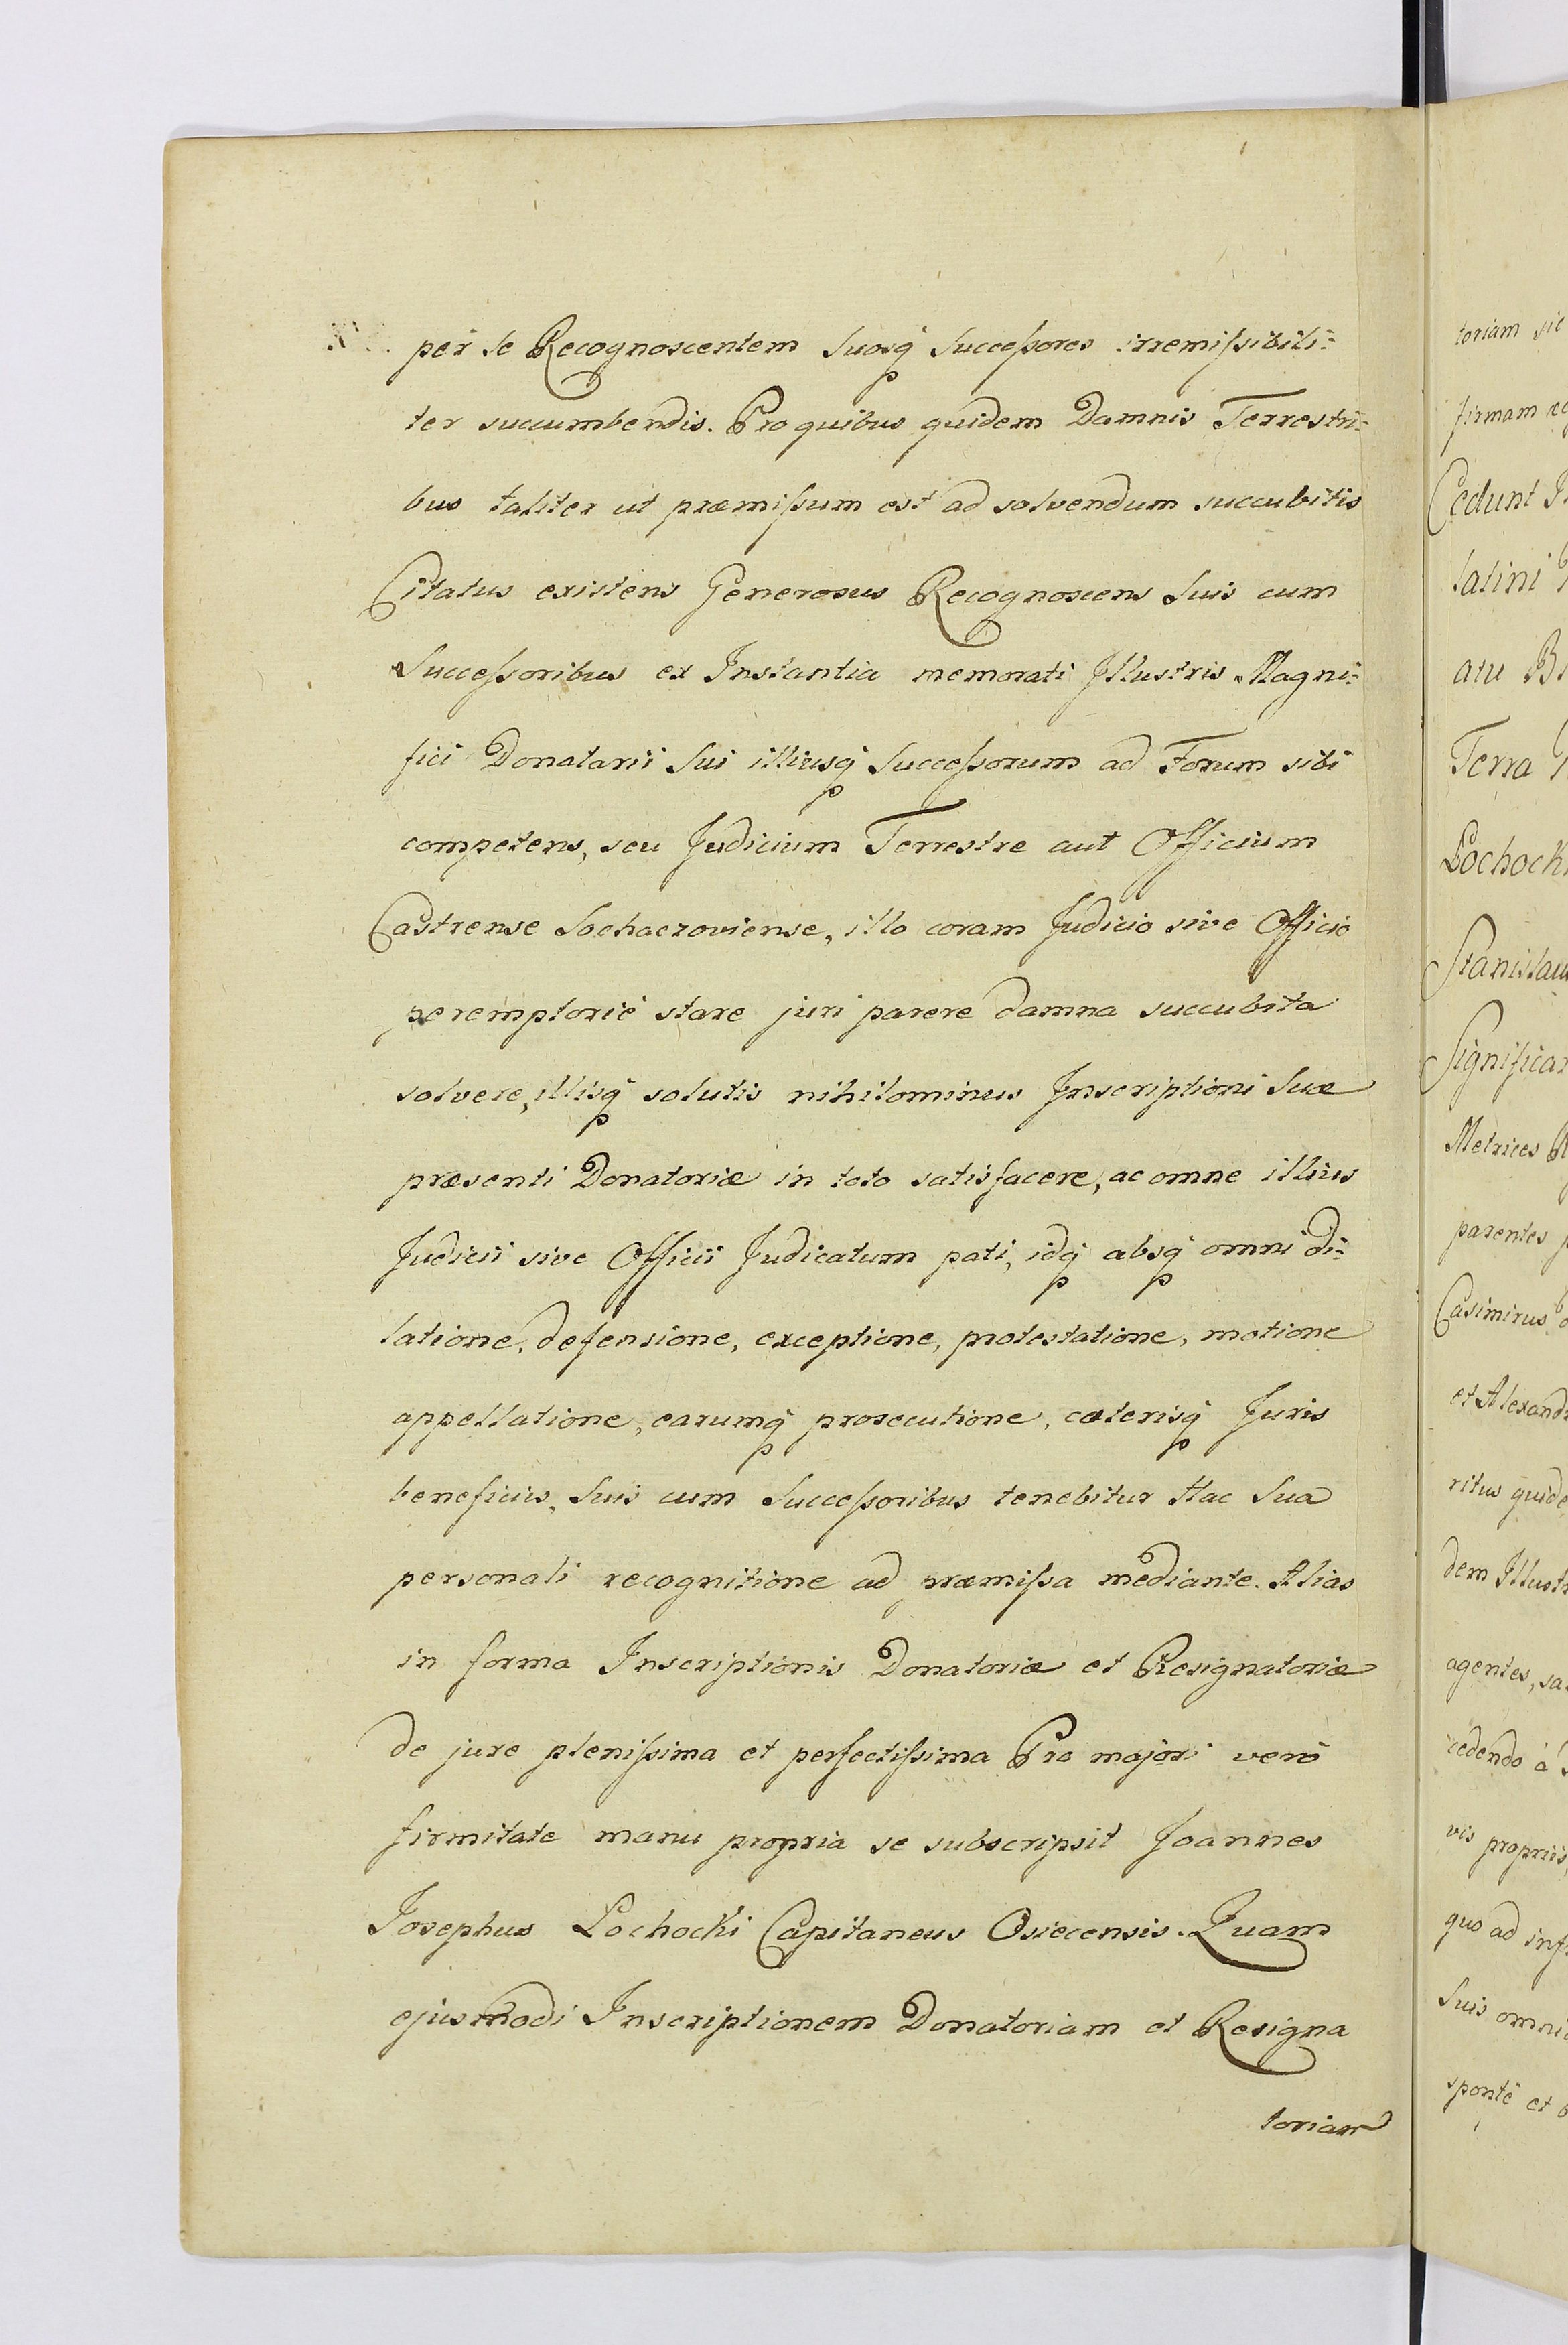 per se Recognoscentem Suosq Succeſsores irremiſsibili=
ter succumbendis. Pro quibus quidem Damnis Terrestri=
bus taliter ut præmiſsum est ad solvendum succubitis
Citatus existens Generosus Recognoscens Suis cum
Succeſsoribus ex Instantia memorati Illustris Magni=
fici Donatarii Sui illiusq Succeſsorum ad Forum sibi
competens, seu Judicium Terrestre aut Officium
Castrense Sochaczoviense, illo coram Judicio sive Officio
peremptoriè stare juri parere damna succubita
solvere, illisq solutis nihilominus Inscriptioni Suæ
præsenti Donatoriæ in toto satisfacere, ac omne illius
Judicii sive Officii Judicatum pati, idq absq omni di=
latione, defensione, exceptione, protestatione, motione
appellatione, earumq prosecutione, cæterisq Juris
beneficiis, Suis cum Succeſsoribus tenebitur Hac Sua
personali recognitione ad præmiſsa mediante. Alias
in forma Inscriptionis Donatoriæ et Resignatoriæ
de jure pleniſsima et perfectiſsima Pro majori verò
firmitate manu propria se subscripsit Joannes
Josephus Lochocki Capitaneus Osiecensis. Quam
ejusmodi Inscriptionem Donatoriam et Resigna
toriam
toriam sic
firmam
Cedunt
latini
atu
Terra
Lochocki
Stanislau
Significar
Metrices
parentes
Casimirus
et Alexand
ritus quide
dem Illust
agentes, sa
cedendo à
vis propriis,
quo ad inf
Suis omni
spontè et